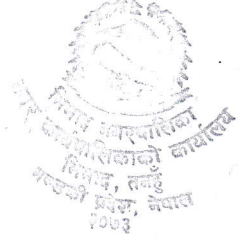 नगरपालिका
नगर कार्यपालिकाको कार्यालय
तनहुँ
गण्डकी प्रदेश, नेपाल
२०७३